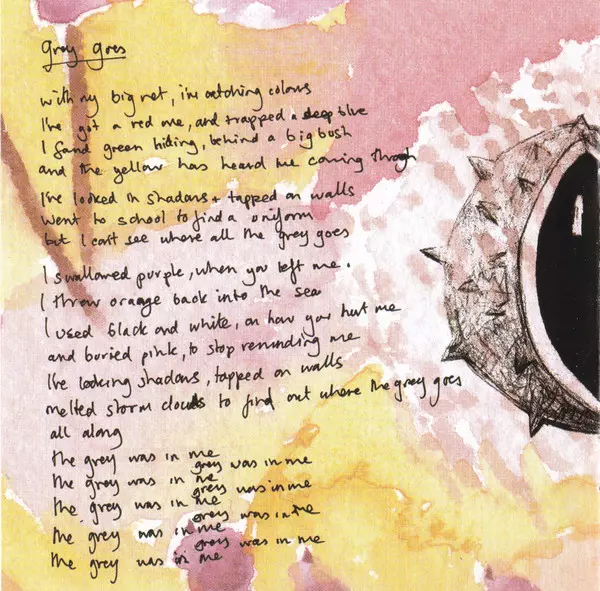 grey goes
with my big net, i'm catching colours
I've got a red one, and trapped a deep blue
I found green hiding, behind a big bush
and the yellow has heard me coming through
I've looked in shadows + tapped on walls
Went to school to find a uniform
but I can't see where all the grey goes
I swallowed purple, when you left me.
I throw orange back into the sea
I used black and white, on how you hurt me
and buried pink, to stop reminding me
I've looking shadows, tapped on walls
melted storm clouds to find out where the grey goes
all along
the grey was in me
grey was in me
the grey was in me
grey was in me
the grey was in me
grey was in me
the grey was in me
grey was in me
the grey was in me